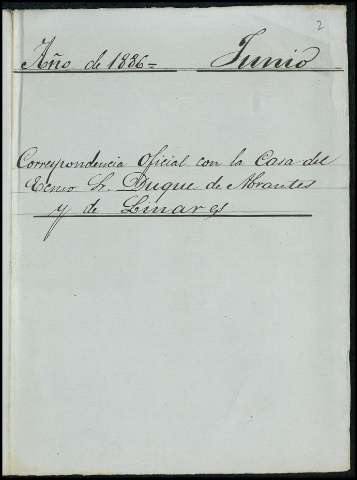 2
Año de 1886= Junio
Correspondencia Oficial con la Casa del
Ecmo Sr. Duque de Abrantes
y de Linares